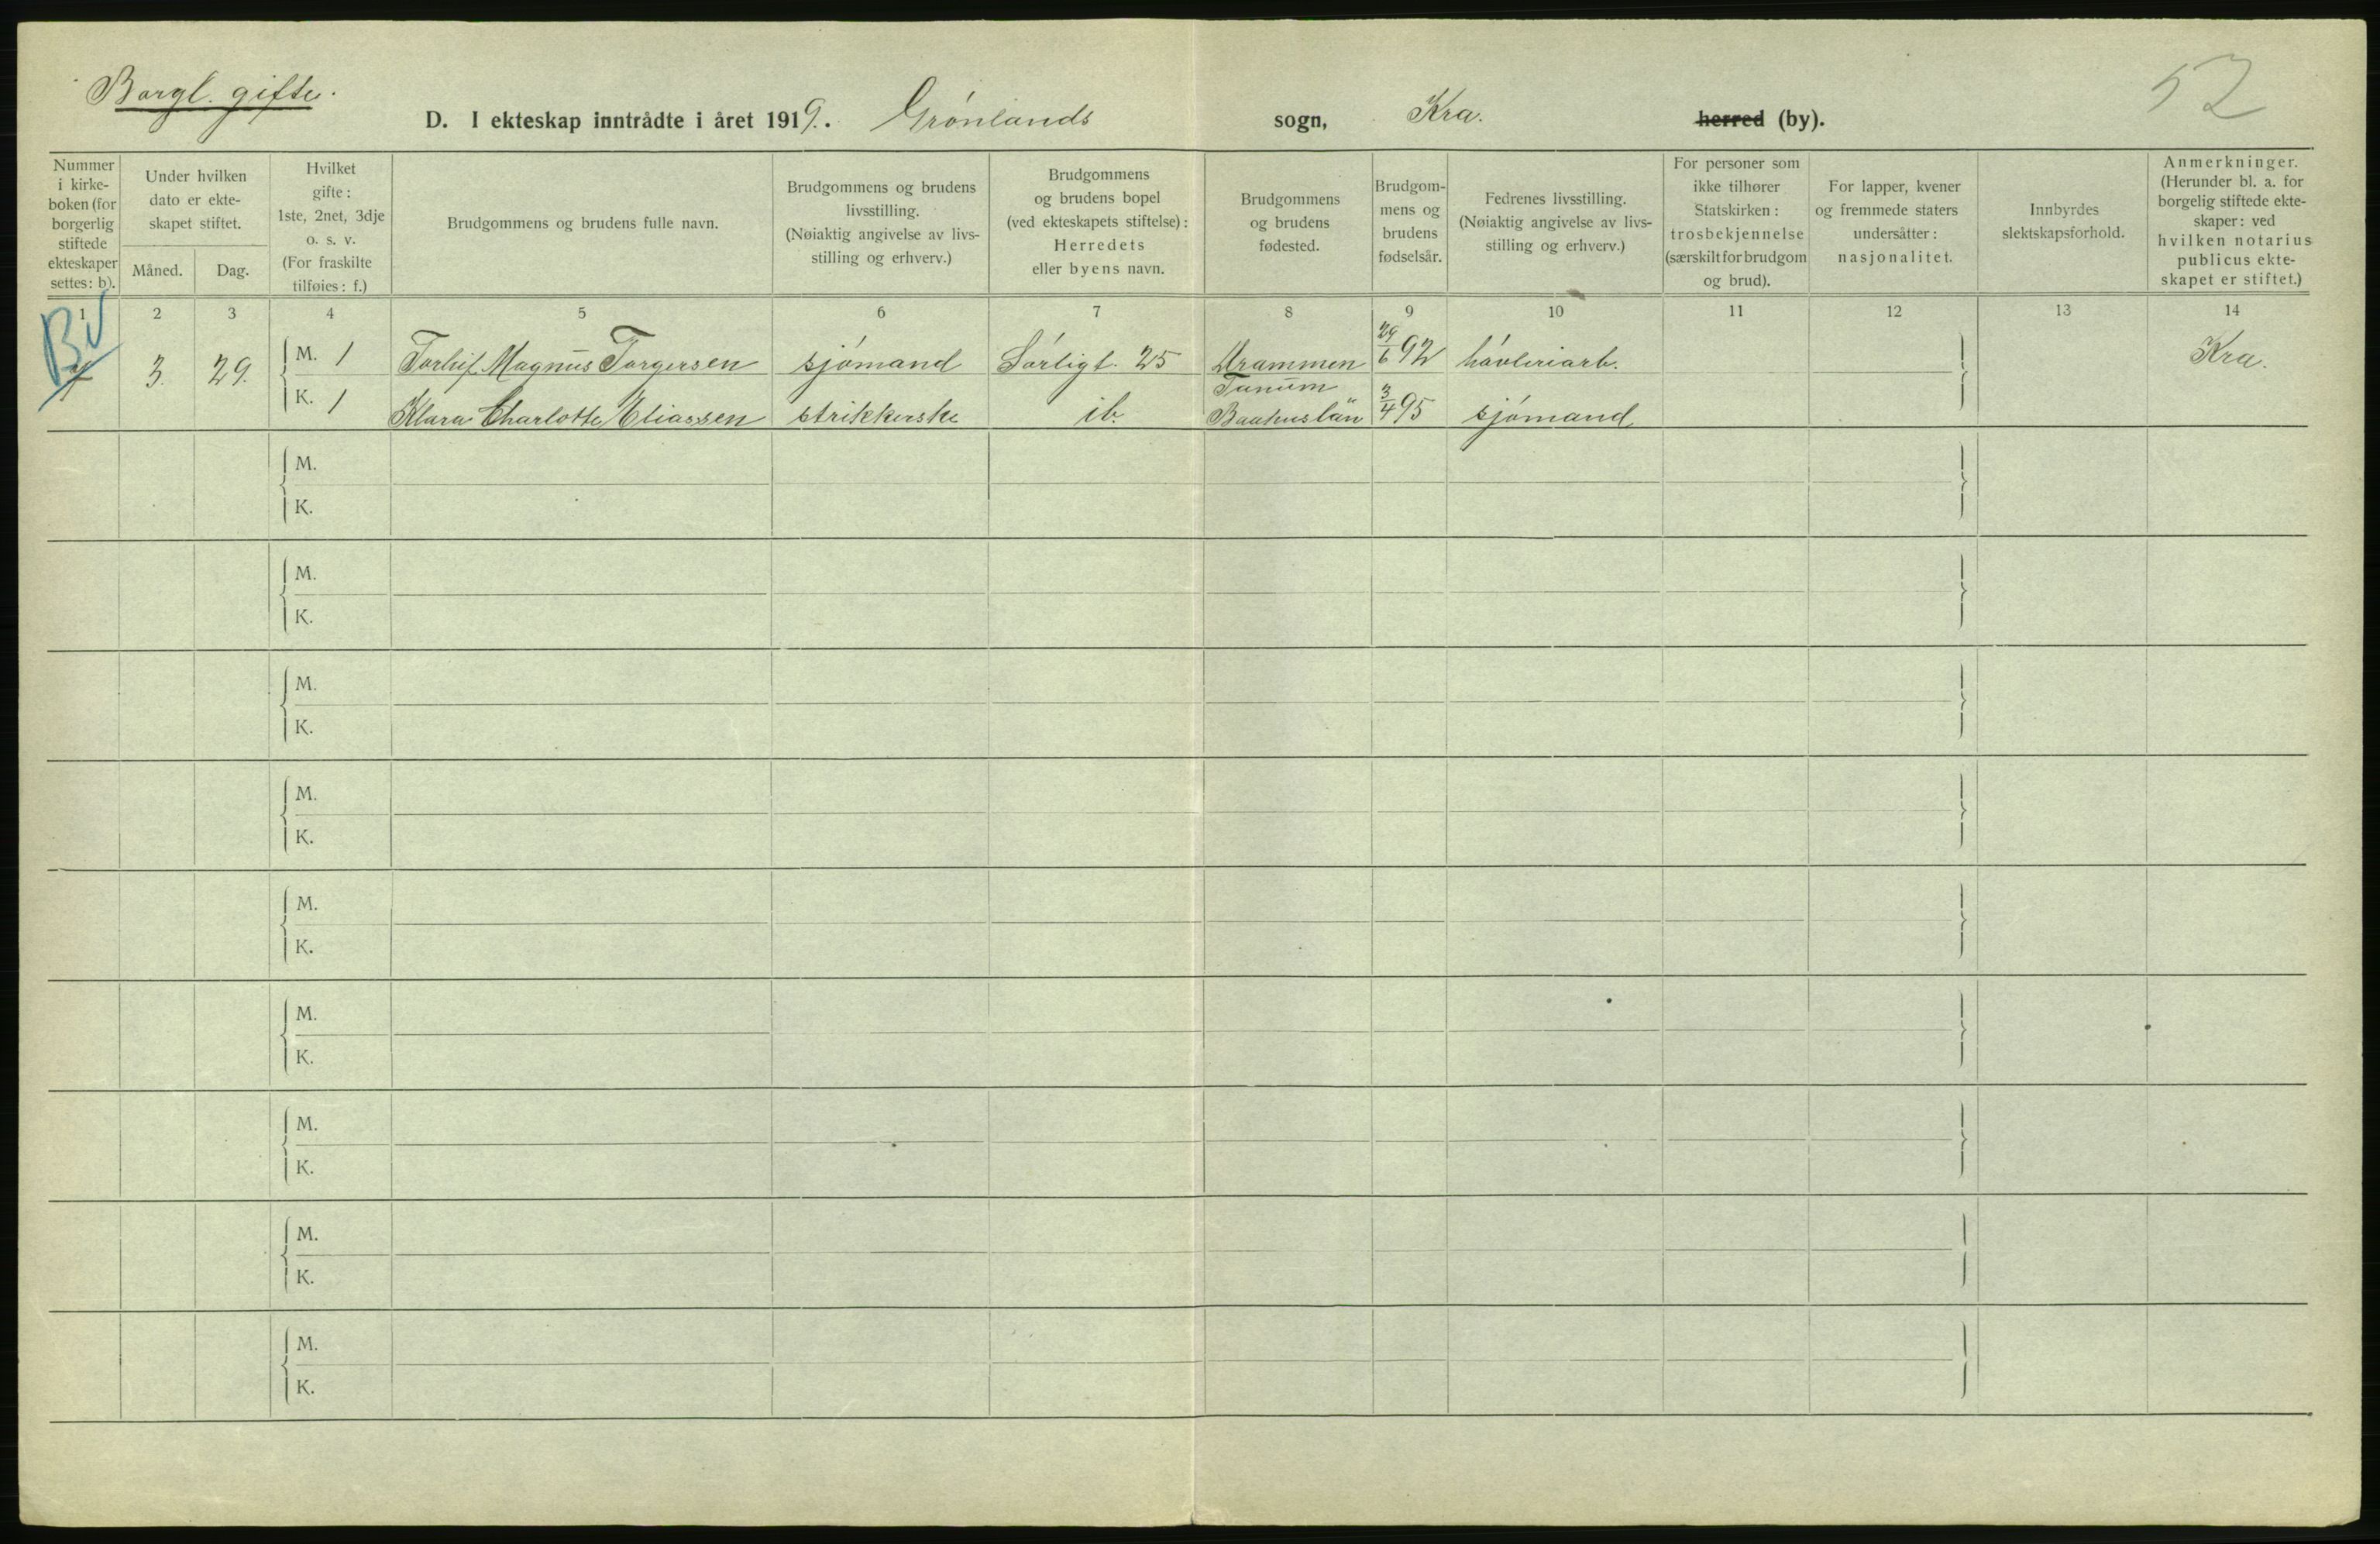 Borgl. gifte.
52
D. I ekteskap inntrådte i året 1919. Grønlands sogn, Kra. herred (by).
Nummer
i kirke-
boken (for
borgerlig
stiftede
ekteskaper
settes: b).
Under hvilken
dato er ekte-
skapet stiftet.
Måned.
Dag.
Hvilket
gifte:
1ste, 2net, 3dje
o. s. v.
(For fraskilte
tilføies: f.)
Brudgommens og brudens fulle navn.
Brudgommens og brudens
livsstilling.
(Nøiaktig angivelse av livs-
stilling og erhverv.)
Brudgommens
og brudens bopel
(ved ekteskapets stiftelse):
Herredets
eller byens navn.
Brudgommens
og brudens
fødested.
Brudgom-
mens og
brudens
fødselsår.
Fedrenes livsstilling.
(Nøiaktig angivelse av livs-
stilling og erhverv.)
For personer som
ikke tilhører
Statskirken:
trosbekjennelse
(særskilt for brudgom
og brud).
For lapper, kvener
og fremmede staters
undersåtter:
nasjonalitet.
Innbyrdes
slektskapsforhold.
Anmerkninger.
(Herunder bl. a. for
borgelig stiftede ekte-
skaper: ved
hvilken notarius
publicus ekte-
skapet er stiftet.)
1 2 3 4 5 6 7 8 9 10 11 12 13 14
3. 29. M. 1 Torleif Magnus Torgersen sjømand Sørligt. 25 Drammen 29/6 92 høvleriarb. Kra.
K. 1 Klara Charlotte Eliassen strikkerske ib. Tanum Baahuslän 3/4 95 sjømand
M.
K.
M.
K.
M.
K.
M.
K.
M.
K.
M.
K.
M.
K.
M.
K.
M.
K.